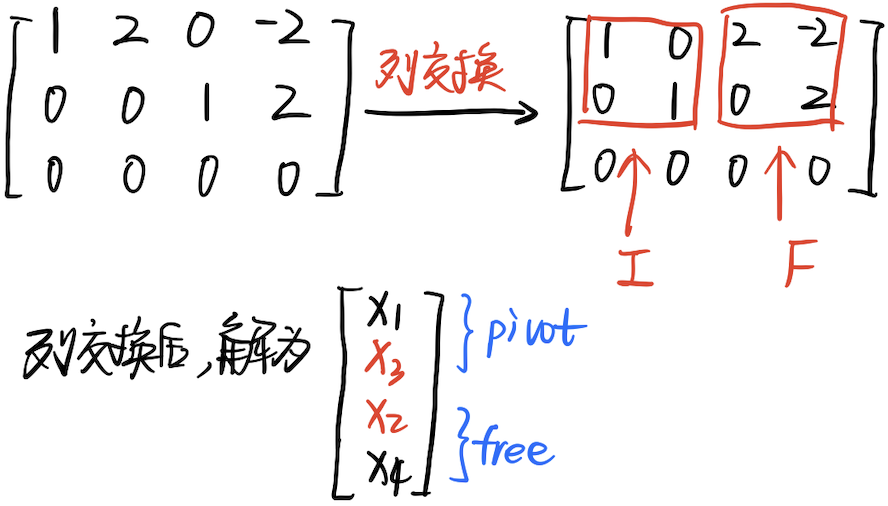 1 2 0 -2
0 0 1 2
0 0 0 0
列交换
1 0 2 -2
0 1 0 2
0 0 0 0
I F
列交换后,解为
x1
x3
x2
x4
} pivot
} free